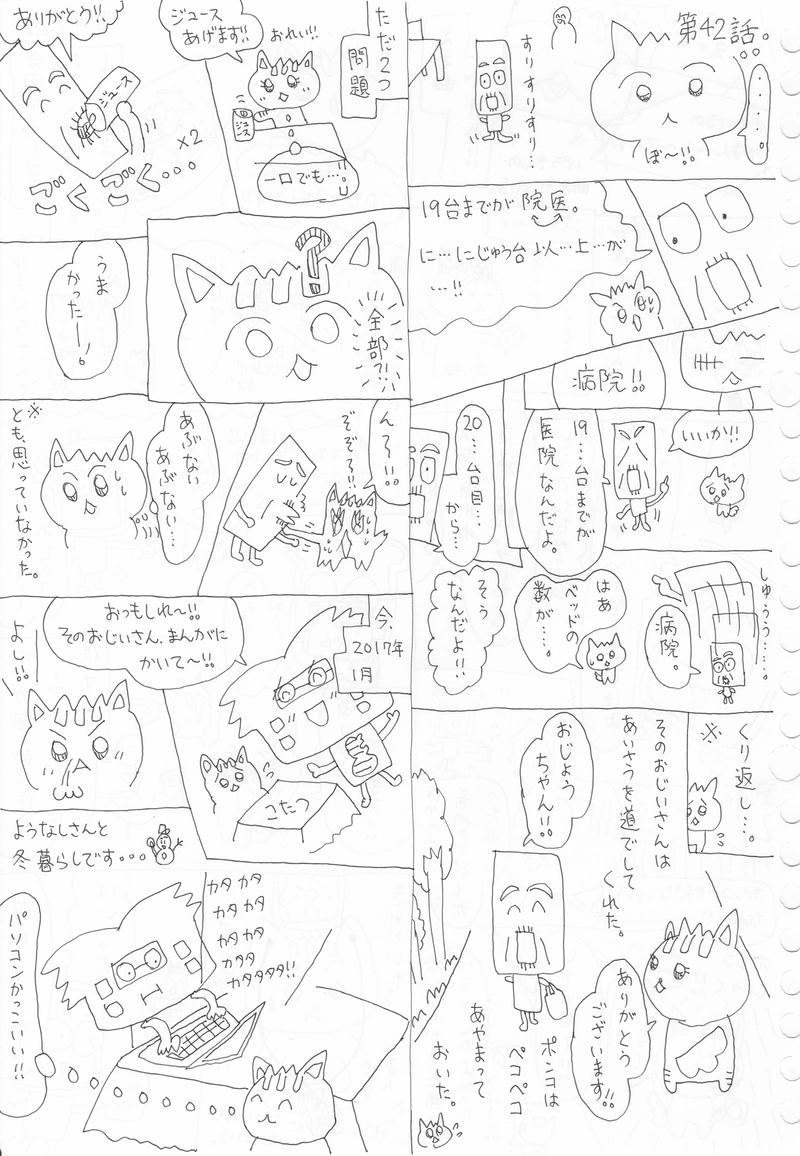 第42話。
・・・・。
ぼ〜!!
すりすりすり…
19台までが院医。
に…にじゅう台以…上…が
…!!
病院!!
いいか!!
19…台までが
医院なんだよ。
20…台目…
から…
しゅうう…。
病院。
はあ
ベッドの
数が…。
そう
なんだよ!!
くり返し…。
※
そのおじいさんは
あいさつを道でして
くれた。
おじょう
ちゃん!!
ありがとう
ございます!!
ポンコは
ペコペコ
あやまって
おいた。
ただ2つ
問題
おれい!!
ジュース
あげます!!
ジュース
一口でも…。
ありがとう!!
ジュース
×2
ごくごく…
全部?!
うま
かったー!
んろ!!
ぞぞろ!!
あぶない
あぶない…
※
とも、思っていなかった。
今、
2017年
1月
おっもしれ〜!!
そのおじいさん、まんがに
かいて〜!!
こたつ
よし!!
ようなしさんと
冬暮らしです…
カタカタ
カタカタ
カタカタ
カタタ
カタタタタ!!
パソコンかっこいい!!